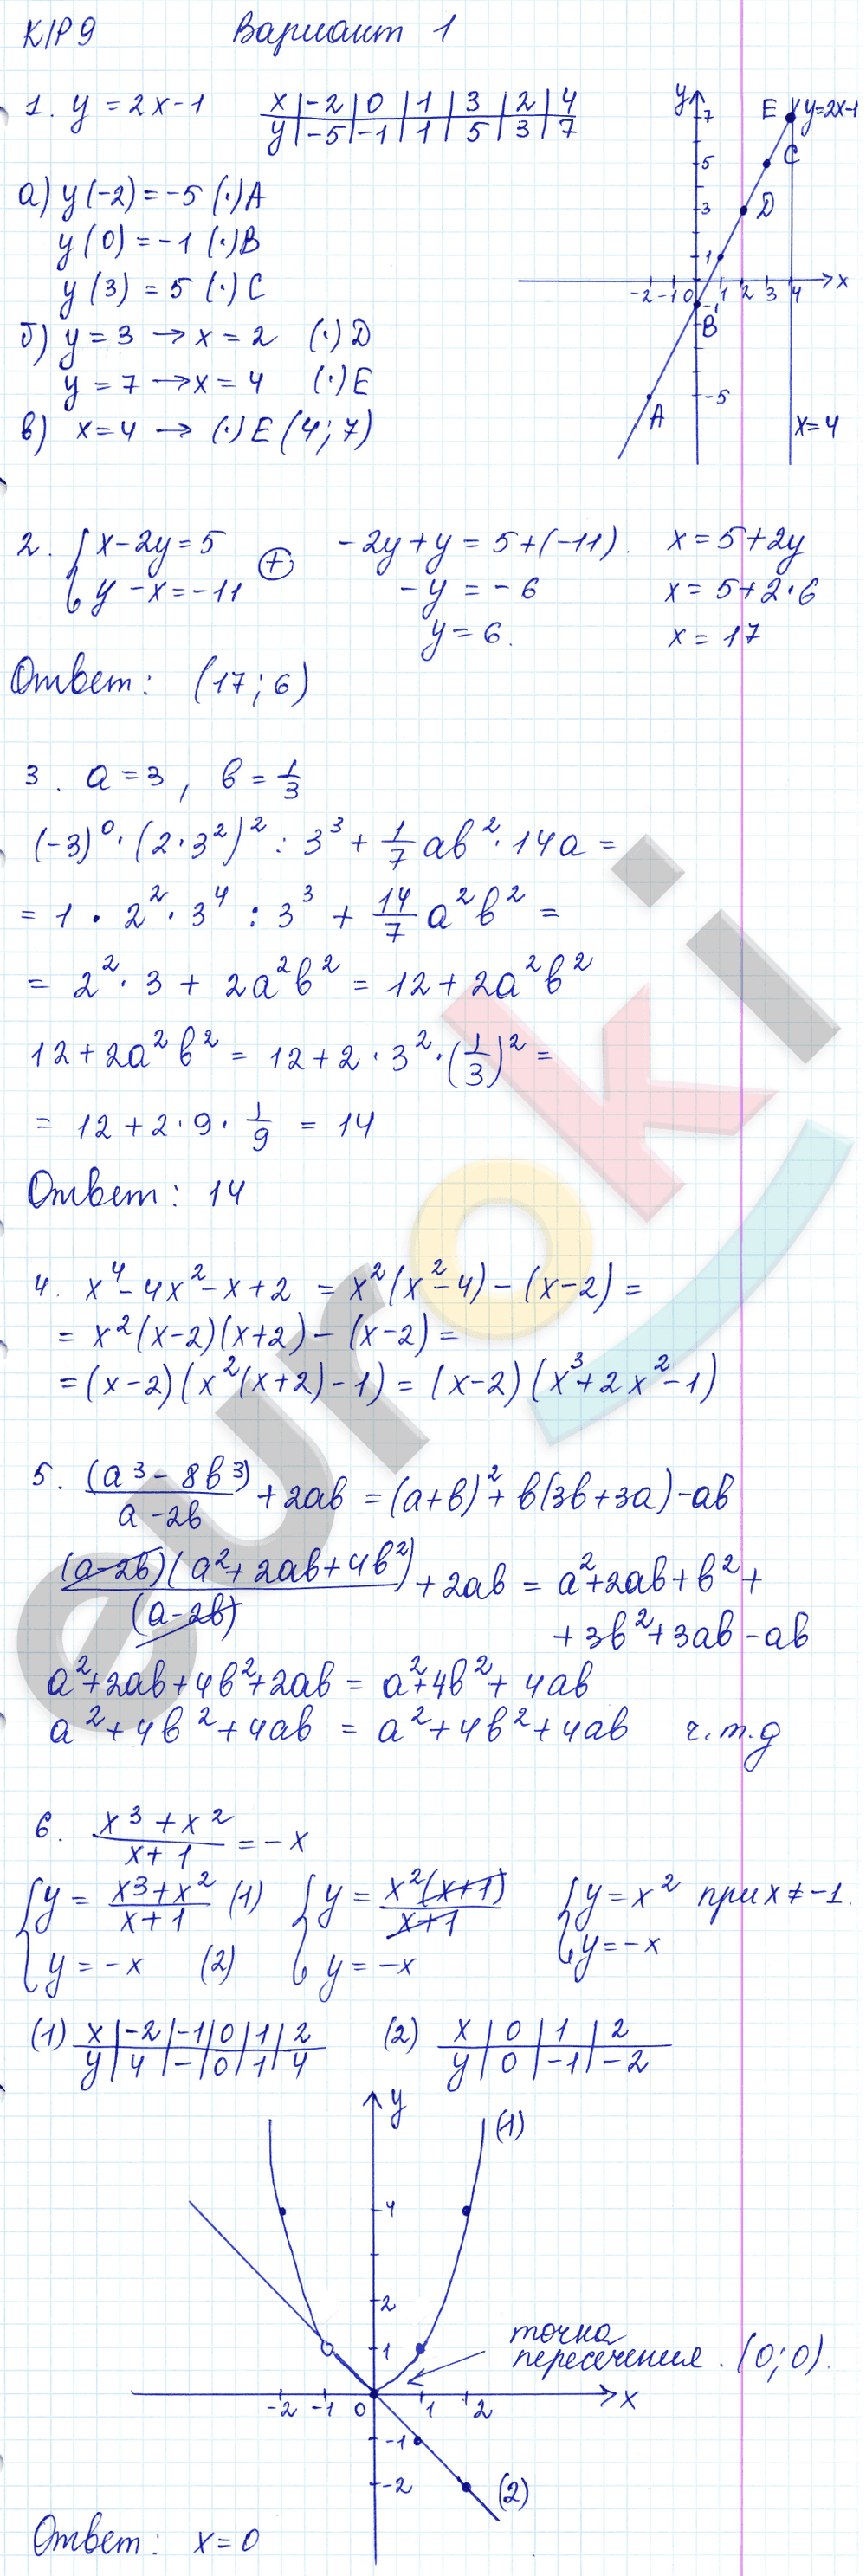 К/Р 9 Вариант 1
1. y = 2x-1
x | -2 | 0 | 1 | 3 | 2 | 4
y | -5 | -1 | 1 | 5 | 3 | 7
а) y(-2) = -5 (·)A
y(0) = -1 (·)B
y(3) = 5 (·)C
б) y = 3 → x = 2 (·)D
y = 7 → x = 4 (·)E
в) x=4 → (·)E(4; 7)
y
7
5
3
1
-2 -1 0 1 2 3 4 x
-1
-5
E
y=2x-1
C
D
B
A
x=4
2. { x-2y=5
y-x=-11
⊕
-2y+y = 5+(-11).
-y = -6
y = 6.
x = 5+2y
x = 5+2·6
x = 17
Ответ: (17; 6)
3. a=3, b=1/3
(-3)⁰·(2·3²)² : 3³ + 1/7 ab²·14a =
= 1 · 2²·3⁴ : 3³ + 14/7 a²b² =
= 2²·3 + 2a²b² = 12+2a²b²
12+2a²b² = 12+2·3²·(1/3)² =
= 12+2·9·1/9 = 14
Ответ: 14
4. x⁴-4x²-x+2 = x²(x²-4)-(x-2) =
= x²(x-2)(x+2)-(x-2) =
=(x-2)(x²(x+2)-1) = (x-2)(x³+2x²-1)
5. (a³-8b³)/(a-2b) +2ab =(a+b)²+b(3b+3a)-ab
(a-2b)(a²+2ab+4b²)/(a-2b) +2ab = a²+2ab+b²+
+3b²+3ab-ab
a²+2ab+4b²+2ab = a²+4b²+4ab
a²+4b²+4ab = a²+4b²+4ab ч.т.д
6. (x³+x²)/(x+1) = -x
{ y = (x³+x²)/(x+1) (1)
y = -x (2)
{ y = x²(x+1)/(x+1)
y = -x
{ y = x² при x ≠ -1.
y = -x
(1) x | -2 | -1 | 0 | 1 | 2
y | 4 | - | 0 | 1 | 4
(2) x | 0 | 1 | 2
y | 0 | -1 | -2
y
(1)
4
2
1
точка
пересечения. (0;0).
-2 -1 0 1 2 x
-1
-2
(2)
Ответ: x=0
euroki